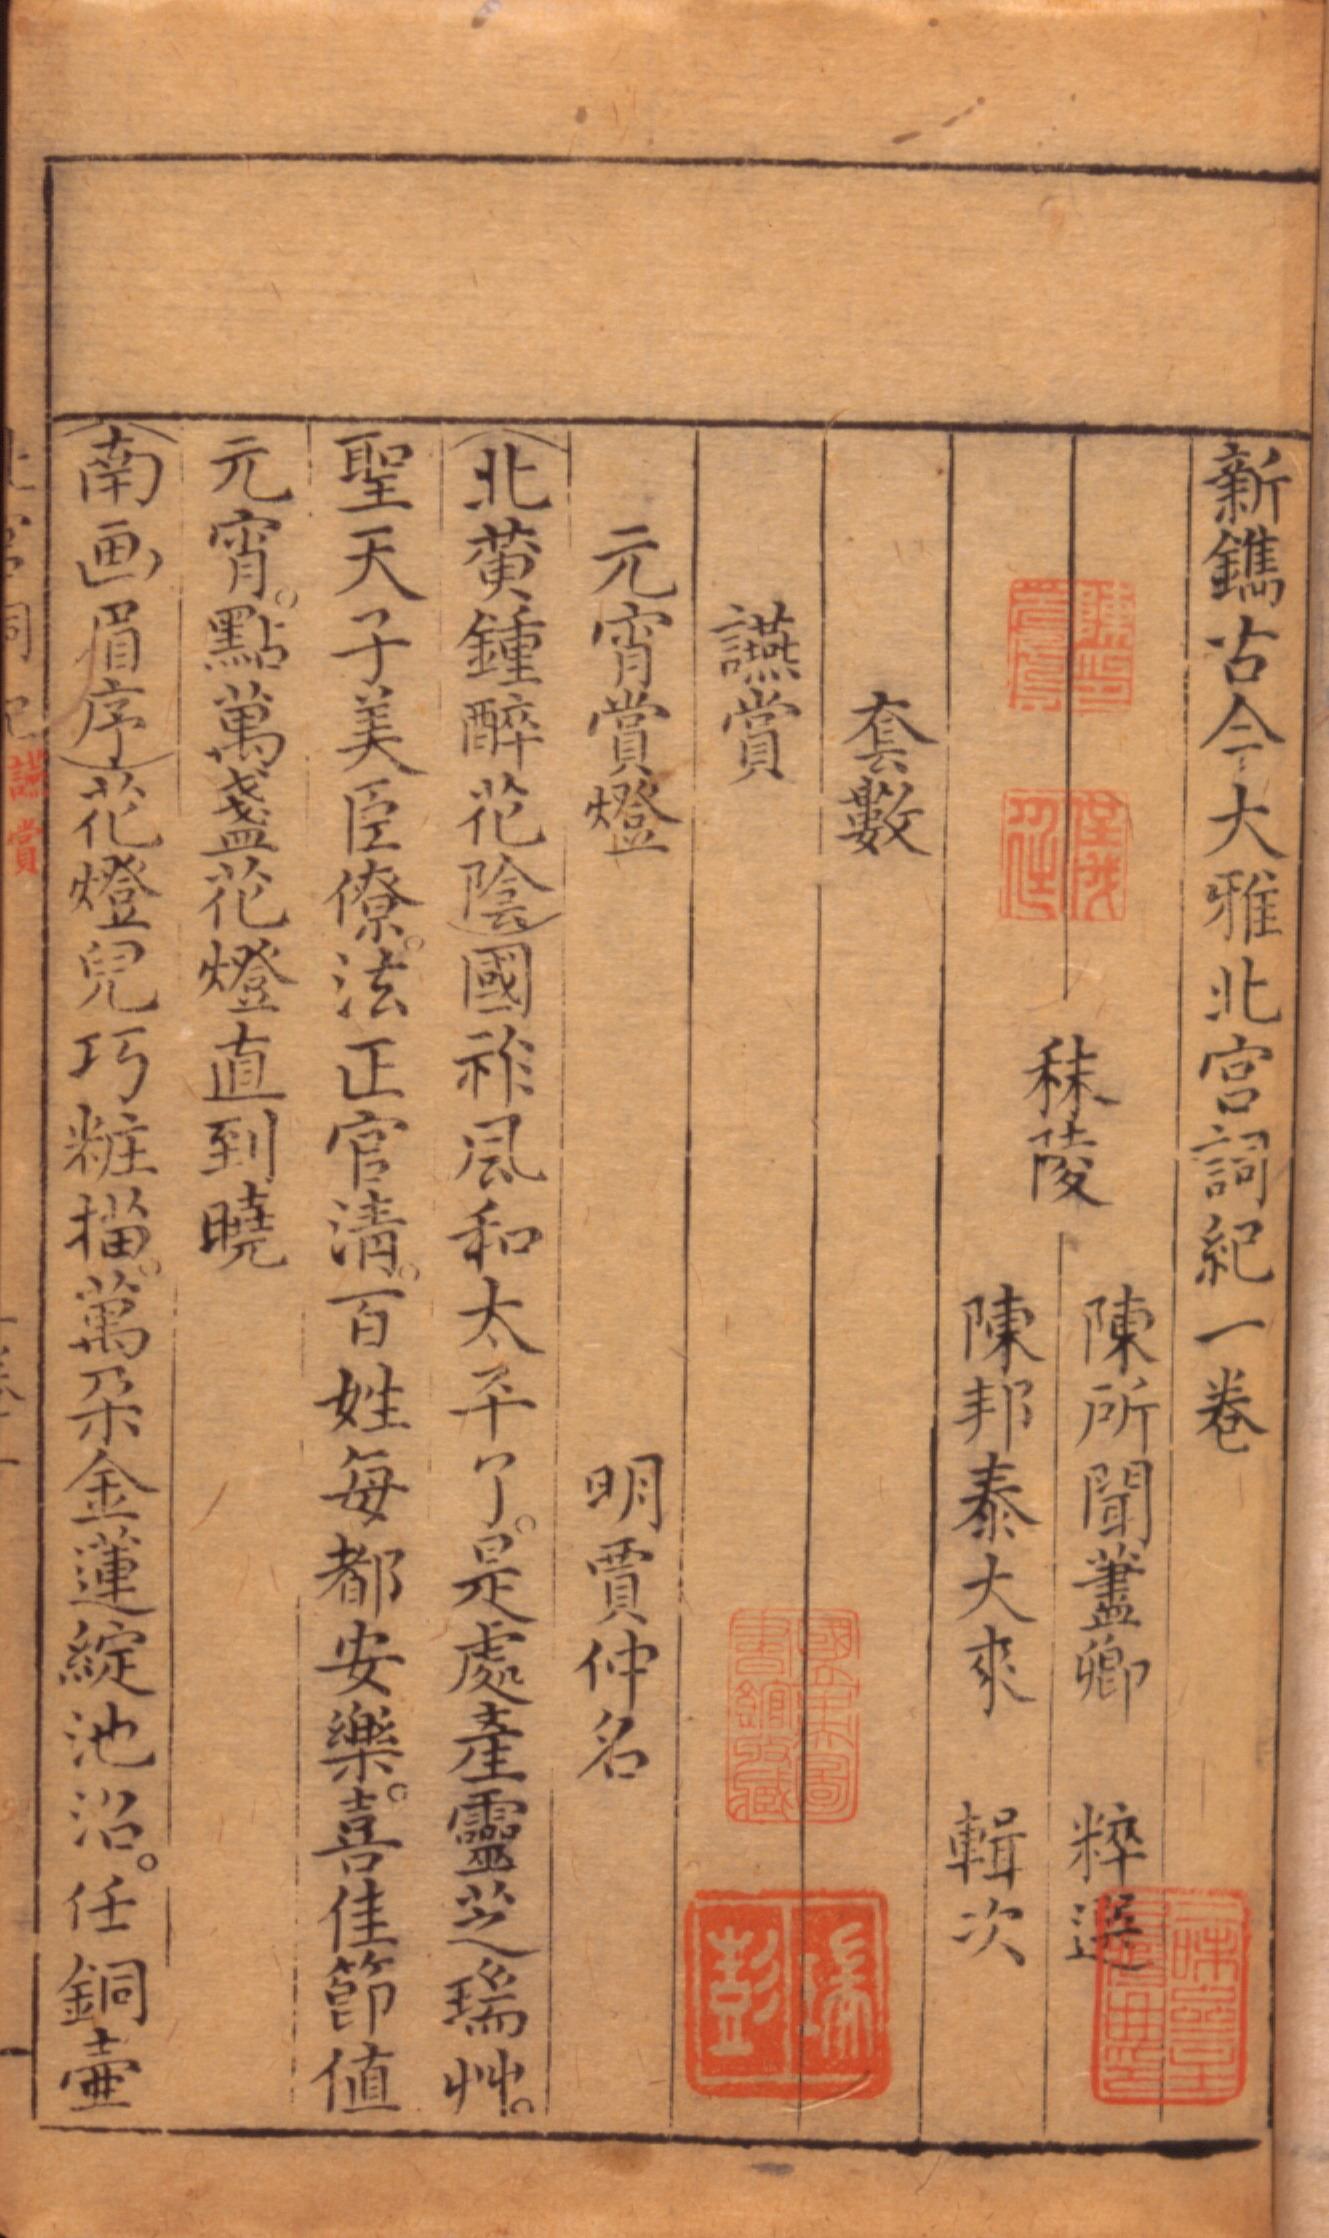 新鐫古今大雅北宮詞紀一卷
秣陵
陳所聞藎卿 粹選
陳邦泰大來 輯次
套數
讌賞
元宵賞燈 明賈仲名
(北黄鍾醉花陰)國祚風和太平了。是處產靈芝瑞艸。
聖天子美臣僚。法正官清。百姓每都安樂。喜佳節值
元宵。點萬盞花燈直到曉
(南画眉序)花燈兒巧粧描。萬朶金蓮綻池沼。任銅壷
讌賞
國立北平圖書館收藏